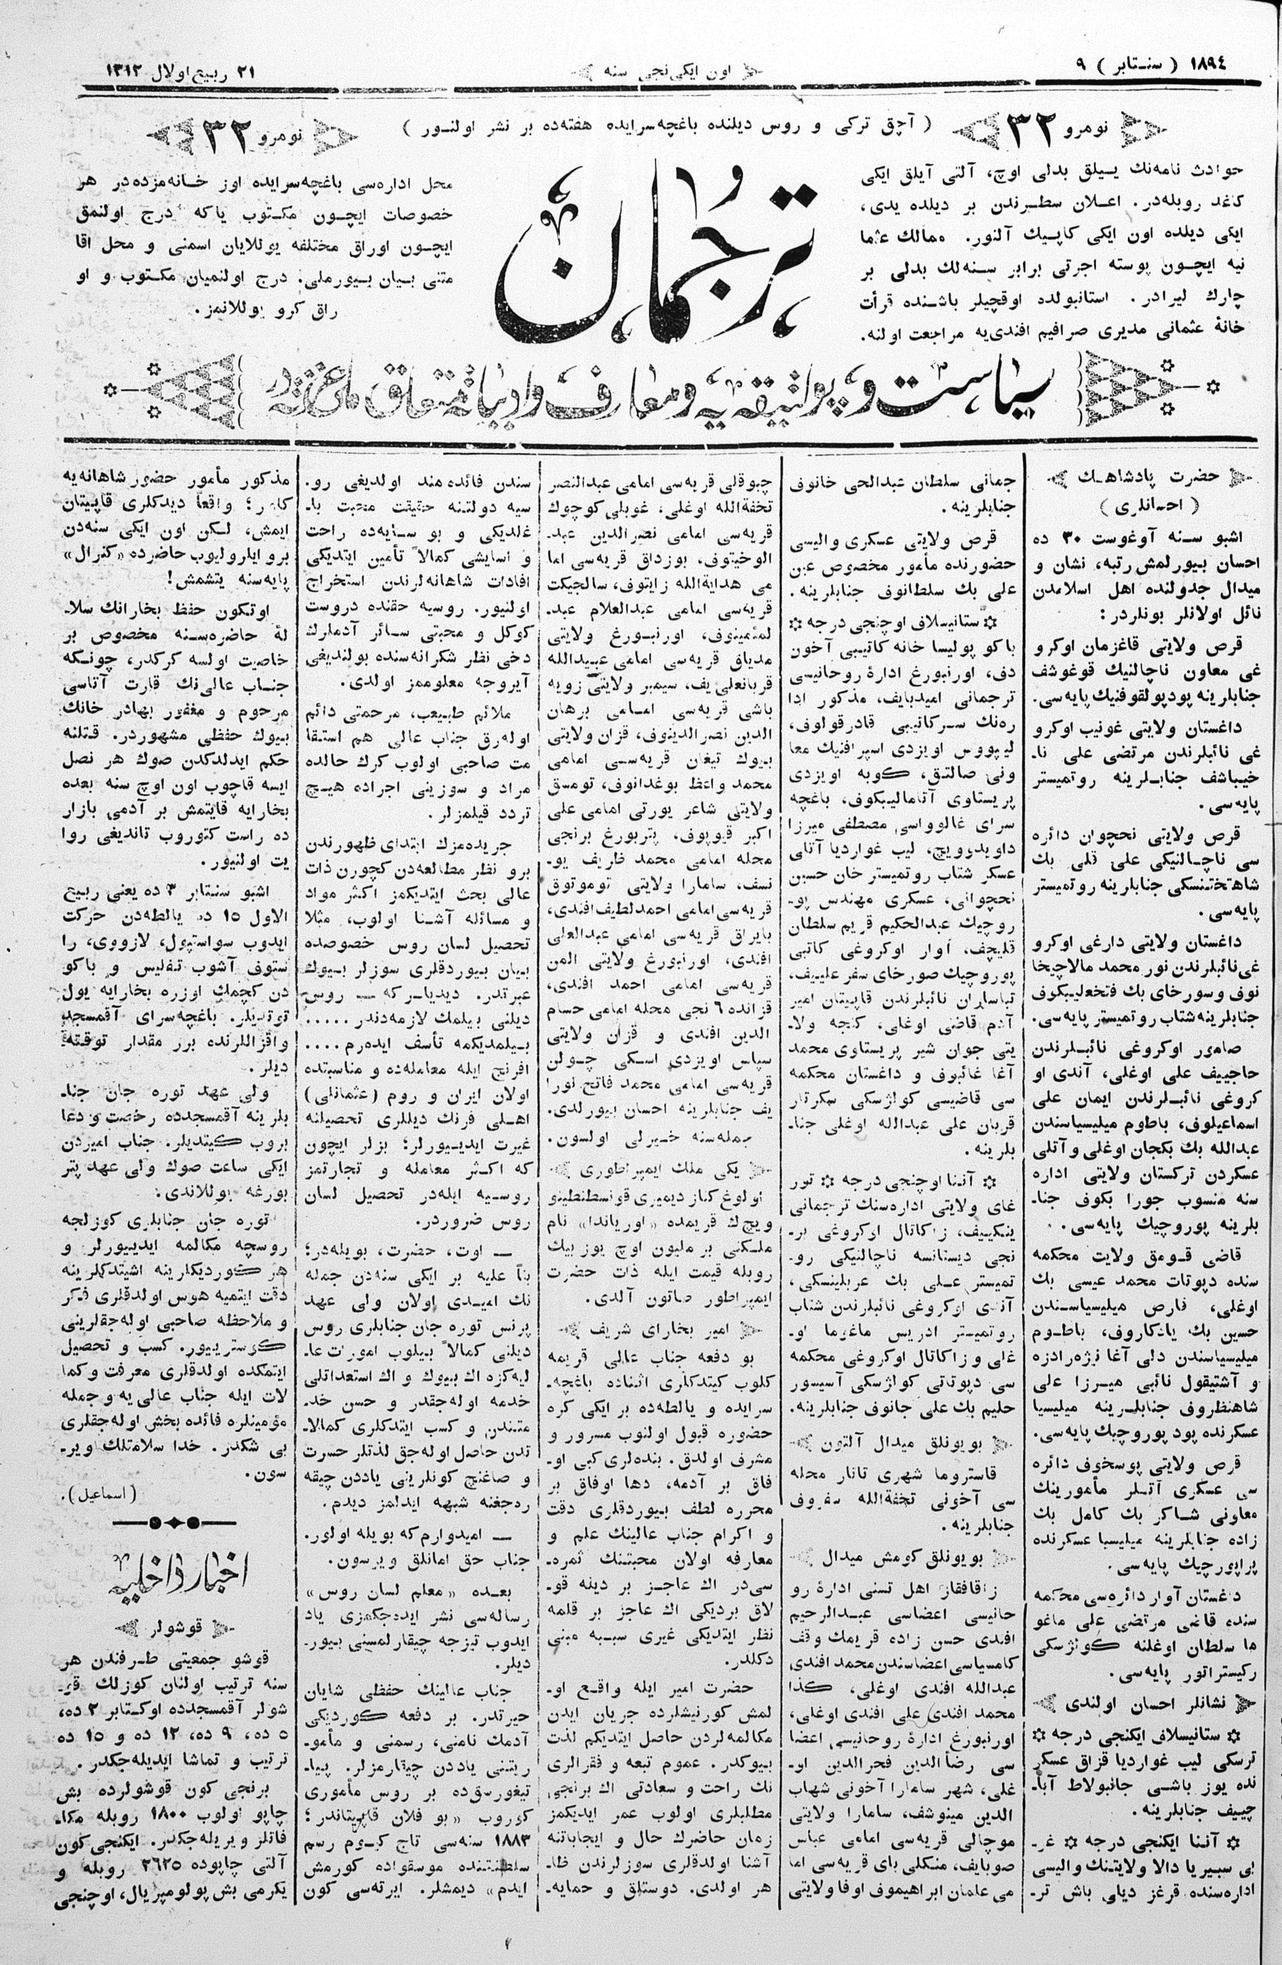 ١٨٩٤ ( سنتابر ) ٩
اون ایكی نجی سنه
٢١ ربیع اولال ١٣١٢
نومرو ٣٢
( آچق تركی و روس دیلنده باغچه‌سرایده هفته‌ده بر نشر اولنور )
نومرو ٣٢
حوادث نامه‌نك ییلق بدلی اوچ، آلتی آیلق ایكی
كاغد روبله‌در. اعلان سطرندن بر دیلده یدی،
ایكی دیلده اون ایكی كاپیك آلنور. ممالك عثما
نیه ایچون پوسته اجرتی برابر سنه‌لك بدلی بر
چارك لیرادر. استانبولده اوقچیلر باشنده قرأت
خانهٔ عثمانی مدیری صرافیم افندی‌یه مراجعت اولنه.
ترجمان
محل اداره‌سی باغچه‌سرایده اوز خانه‌مزده‌در هر
خصوصات ایچون مكتوب یاكه درج اولنمق
ایچون اوراق مختلفه یوللایان اسمنی و محل اقا
متنی بیان بیورملی. درج اولنمیان مكتوب و او
راق كرو یوللانمز.
سیاست و پولتیقه‌یه و معارف و ادبیاته متعلق ملی غزته‌در
حضرت پادشاهك
( احسانلری )
اشبو سنه آوغوست ٣٠ ده
احسان بیورلمش رتبه، نشان و
میدال جدولنده اهل اسلامدن
نائل اولانلر بونلردر:
قرص ولایتی قاغزمان اوكرو
غی معاون ناچالنیك قوغوشف
جنابلرینه پودپولقوفنیك پایه‌سی.
داغستان ولایتی غونیب اوكرو
غی نائبلرندن مرتضی علی نا-
خیباشف جنابلرینه روتمیستر
پایه‌سی.
قرص ولایتی نخچوان دائره
سی ناچالنیكی علی قلی بك
شاهتختنسكی جنابلرینه روتمیستر
پایه‌سی.
داغستان ولایتی دارغی اوكرو
غی نائبلرندن نور محمد مالاچیخا
نوف و سورخای بك فتحعلیبكوف
جنابلرینه شتاب روتمیستر پایه‌سی.
صامور اوكروغی نائبلرندن
حاجییف علی اوغلی، آندی او
كروغی نائبلرندن ایمان علی
اسماعیلوف، باطوم میلیسیاسندن
عبدالله بك بكجان اوغلی و آتلی
عسكردن تركستان ولایتی اداره
سنه منسوب جورا بكوف جنا-
بلرینه پوروچیك پایه‌سی.
قاضی قومق ولایت محكمه
سنده دپوتات محمد عیسی بك
اوغلی، قارص میلیسیاسندن
حسین بك یادكاروف، باطوم
میلیسیاسندن دلی آغا نیژه‌رادزه
و آشتیقول نائبی میرزا علی
شاهنظروف جنابلرینه میلیسیا
عسكرنده پود پوروچیك پایه‌سی.
قرص ولایتی پوسخوف دائره
سی عسكری آتلر مأمورینك
معاونی شاكر بك كامل بك
زاده جنابلرینه میلیسیا عسكرنده
پراپورچیك پایه‌سی.
داغستان آوار دائره‌سی محكمه
سنده قاضی مرتضی علی ماغو
ما سلطان اوغلنه كوللژسكی
ركیستراتور پایه‌سی.
نشانلر احسان اولندی
ستانیسلاف ایكنجی درجه
ترسكی لیب غواردیا قزاق عسكر
نده یوز باشی جانبولاط آبا-
چییف جنابلرینه.
آننا ایكنجی درجه غر-
بی سبیریا دالا ولایتنك والیسی
اداره‌سنده قرغز دیلی باش تر-
جمانی سلطان عبدالحی خانوف
جنابلرینه.
قرص ولایتی عسكری والیسی
حضورنده مأمور مخصوص عین
علی بك سلطانوف جنابلرینه.
ستانیسلاف اوچنجی درجه
باكو پولیسا خانه كاتیبی آخون
دف، اورنبورغ ادارهٔ روحانیسی
ترجمانی امیدبایف، مذكور ادا
ره‌نك سركاتیبی قادرقولوف،
لیپووس اویزدی اسپرافنیك معا
ونی صالتق، كوبه اویزدی
پریستاوی آتامالیبكوف، باغچه
سرای غالوواسی مصطفی میرزا
داویدوویچ، لیب غواردیا آتلی
عسكر شتاب روتمیستر خان حسین
نخچوانی، عسكری مهندس پو-
روچیك عبدالحكیم قریم سلطان
قلیچف، آوار اوكروغی كاتبی
پوروچیك صورخای سفر علییف،
تباسران نائبلرندن قاپیتان امیر
آدم قاضی اوغلی، كنجه ولا-
یتی جوان شیر پریستاوی محمد
آغا غائبوف و داغستان محكمه
سی قاضیسی كوللژسكی سكرتار
قربان علی عبدالله اوغلی جنا-
بلرینه.
آننا اوچنجی درجه تور
غای ولایتی اداره‌سنك ترجمانی
ینكییف، زاكاتال اوكروغی بر-
نجی دیستانسه ناچالنیكی رو-
تمیستر علی بك عربلینسكی،
آندی اوكروغی نائبلرندن شتاب
روتمیستر ادریس ماغوما او-
غلی و زاكاتال اوكروغی محكمه
سی دپوتاتی كوللژسكی آسیسور
حلیم بك علی جانوف جنابلرینه.
بویونلق میدال آلتون
قاستروما شهری تاتار محله
سی آخونی تحفةالله سفروف
جنابلرینه.
بویونلق كومش میدال
زاقافقاز اهل تسنی ادارهٔ رو
حانیسی اعضاسی عبدالرحیم
افندی حسن زاده قریمك وقف
كامسیاسی اعضاسندن محمد افندی
عبدالله افندی اوغلی، كذا
محمد افندی علی افندی اوغلی،
اورنبورغ ادارهٔ روحانیسی اعضا
سی رضأالدین فخرالدین او-
غلی، شهر سامارا آخونی شهاب
الدین مینوشف، سامارا ولایتی
موچالی قریه‌سی امامی عباس
صوبایف، منكلی بای قریه‌سی اما
می علمان ابراهیموف اوفا ولایتی
چبوقلی قریه‌سی امامی عبدالنصر
تحفةالله اوغلی، غوبلی كوچوك
قریه‌سی امامی نصرالدین عبد-
الوخیتوف، بوزداق قریه‌سی اما
می هدایةالله زایتوف، سالجیكت
قریه‌سی امامی عبدالعلام عبد-
لمئمینوف، اورنبورغ ولایتی
مدیاق قریه‌سی امامی عبیدالله
قربانعلی یف، سیمبر ولایتی زویه
باشی قریه‌سی امامی برهان
الدین نصرالدینوف، قزان ولایتی
بیوك تیغان قریه‌سی امامی
محمد واعظ بوغدانوف، تومسق
ولایتی شاعر یورتی امامی علی
اكبر قیوپوف، پتربورغ برنجی
محله امامی محمد ظریف یو-
نسف، سامارا ولایتی توموتوق
قریه‌سی امامی احمد لطیف افندی،
بایراق قریه‌سی امامی عبدالعلی
افندی، اورنبورغ ولایتی المن
قریه‌سی امامی احمد افندی،
قزانده ٦ نجی محله امامی حسام
الدین افندی و قزان ولایتی
سپاس اویزدی اسكی چولن
قریه‌سی امامی محمد فاتح نورا
یف جنابلرینه احسان بیورلدی.
جمله‌سنه خیرلی اولسون.
یكی ملك ایمپراطوری
اولوغ كناز دیمیری قونسطنطینو
ویچك قریمده «اوریاندا» نام
ملكنی بر ملیون اوچ یوز بیك
روبله قیمت ایله ذات حضرت
ایمپراطور صاتون آلدی.
امیر بخارای شریف
بو دفعه جناب عالی قریمه
كلوب كیتدكلری اثناده باغچه-
سرایده و یالطه‌ده بر ایكی كره
حضوره قبول اولنوب مسرور و
مشرف اولدق. بنده‌لری كبی او-
فاق بر آدمه، دها اوفاق بر
محرره لطف بیوردقلری دقت
و اكرام جناب عالینك علم و
معارفه اولان محبتنك ثمره-
سی‌در اك عاجز بر دینه قو-
لاق بردیكی اك عاجز بر قلمه
نظر ایتدیكی غیری سببه مبنی
دكلدر.
حضرت امیر ایله واقع او-
لمش كورنیشلرده جریان ایدن
مكالمه‌لردن حاصل ایتدیكم لذت
بیوكدر. عموم تبعه و فقرالری
نك راحت و سعادتی اك برنجی
مطلبلری اولوب عمر ایدیكمز
زمان حاضرك حال و ایجاباتنه
آشنا اولدقلری سوزلرندن ظا-
هر اولدی. دوستلق و حمایه-
سندن فائده‌مند اولدیغی رو-
سیه دولتنه حقیقت محبت با-
غلدیكی و بو سایه‌ده راحت
و اسایشی كمالاً تأمین ایتدیكی
افادات شاهانه‌لرندن استخراج
اولنیور. روسیه حقنده دروست
كوكل و محبتی سائر آدملرك
دخی نظر شكرانه‌سنده بولندیغی
آیروجه معلوممز اولدی.
ملائم طبیعب، مرحمتی دائم
اوله‌رق جناب عالی هم استقا
مت صاحبی اولوب كرك حالده
مراد و سوزینی اجراده هیچ
تردد قیلمزلر.
جریده‌مزك ابتدای ظهورندن
برو نظر مطالعه‌دن كچورن ذات
عالی بحث ایتدیكمز اكثر مواد
و مسائله آشنا اولوب، مثلا
تحصیل لسان روس خصوصده
بیان بیوردقلری سوزلر بیوك
عبرتدر. دیدیلر كه — روس
دیلنی بیلمك لازمه‌دندر .....
بیلمدیكمه تأسف ایده‌رم ....
افرنج ایله معامله‌ده و مناسبتده
اولان ایران و روم (عثمانلی)
اهلی فرنك دیللری تحصیلنه
غیرت ایدیورلر؛ بزلر ایچون
كه اكثر معامله و تجارتمز
روسیه ایله‌در تحصیل لسان
روس ضروردر.
— اوت، حضرت، بویله‌در؛
بنأ علیه بر ایكی سنه‌دن جمله
نك امیدی اولان ولی عهد
پرنس توره جان جنابلری روس
دیلنی كمالاً بیلوب امورت عا-
لیه‌كزه اك بیوك و اك استعداتلی
خدمه اوله‌جقدر و حسن خد-
متندن و كسب ایتدكلری كمالا-
تدن حاصل اوله‌جق لذتلر حسرت
و صاغنچ كونلرینی یاددن چیقه
ره‌جغنه شبهه ایدلمز دیدم.
— امیدوارم كه بویله اولور.
جناب حق امانلق ویرسون.
بعده «معلم لسان روس»
رساله‌سی نشر ایده‌جكمزی یاد
ایدوب تیزجه چیقارلمسنی بیور-
دیلر.
جناب عالینك حفظی شایان
حیرتدر. بر دفعه كوردیكی
آدمك نامنی، رسمنی و مأمو-
ریتنی یاددن چیقارمزلر. پیا-
تیغورسق‌ده بر روس مأموری
كوروب «بو فلان قاپیتاندر؛
١٨٨٣ سنه‌سی تاج كیوم رسم
سلطنتنده موسقواده كورمش
ایدم» دیمشلر. ایرته‌سی كون
مذكور مأمور حضور شاهانه‌یه
كلور؛ واقعاً دیدكلری قاپیتان
ایمش، لكن اون ایكی سنه‌دن
برو ایلرولیوب حاضرده «كنرال»
پایه‌سنه یتشمش!
اوتكون حفظ بخارانك سلا-
لهٔ حاضره‌سنه مخصوص بر
خاصیت اولسه كركدر، چونكه
جناب عالی‌نك قارت آتاسی
مرحوم و مغفور بهادر خانك
بیوك حفظی مشهوردر. قتلنه
حكم ایدلدكدن صوك هر نصل
ایسه قاچوب اون اوچ سنه بعده
بخارایه قایتمش بر آدمی بازار
ده راست كتوروب تاندیغی روا
یت اولنیور.
اشبو سنتابر ٣ ده یعنی ربیع
الاول ١٥ ده یالطه‌دن حركت
ایدوب سواستپول، لازووی، را
ستوف آشوب تفلیس و باكو
دن كچمك اوزره بخارایه یول
توتدیلر. باغچه‌سرای آقمسجد
واقزاللرنده برر مقدار توقته-
دیلر.
ولی عهد توره جان جنا-
بلرینه آقمسجدده رخصت و دعا
بروب كیتدیلر. جناب امیردن
ایكی ساعت صوك ولی عهد پتر
بورغه یوللاندی.
توره جان جنابلری كوزلجه
روسچه مكالمه ایدیورلر و
هر كوردیكلرینه اشیتدكلرینه
دقت ایتمیه هوس اولدقلری فكر
و ملاحظه صاحبی اوله‌جقلرینی
كوستریور. كسب و تحصیل
ایتمكده اولدقلری معرفت و كما
لات ایله جناب عالی‌یه و جمله
مؤمینلره فائده بخش اوله‌جقلری
بی شكدر. خدا سلامتلك ویر-
سون.
(اسماعیل).
اخبار داخلیه
قوشولر
قوشو جمعیتی طرفندن هر
سنه ترتیب اولنان كوزلك قو-
شولر آقمسجدده اوكتابر ٢ ده،
٥ ده، ٩ ده، ١٢ ده و ١٥ ده
ترتیب و تماشا ایدیله‌جكدر.
برنجی كون قوشولرده بش
چاپو اولوب ١٨٠٠ روبله مكا-
فاتلر ویریله‌جكدر. ایكنجی كون
آلتی چاپوده ٢٦٢٥ روبله و
یكرمی بش پولومپریال، اوچنجی